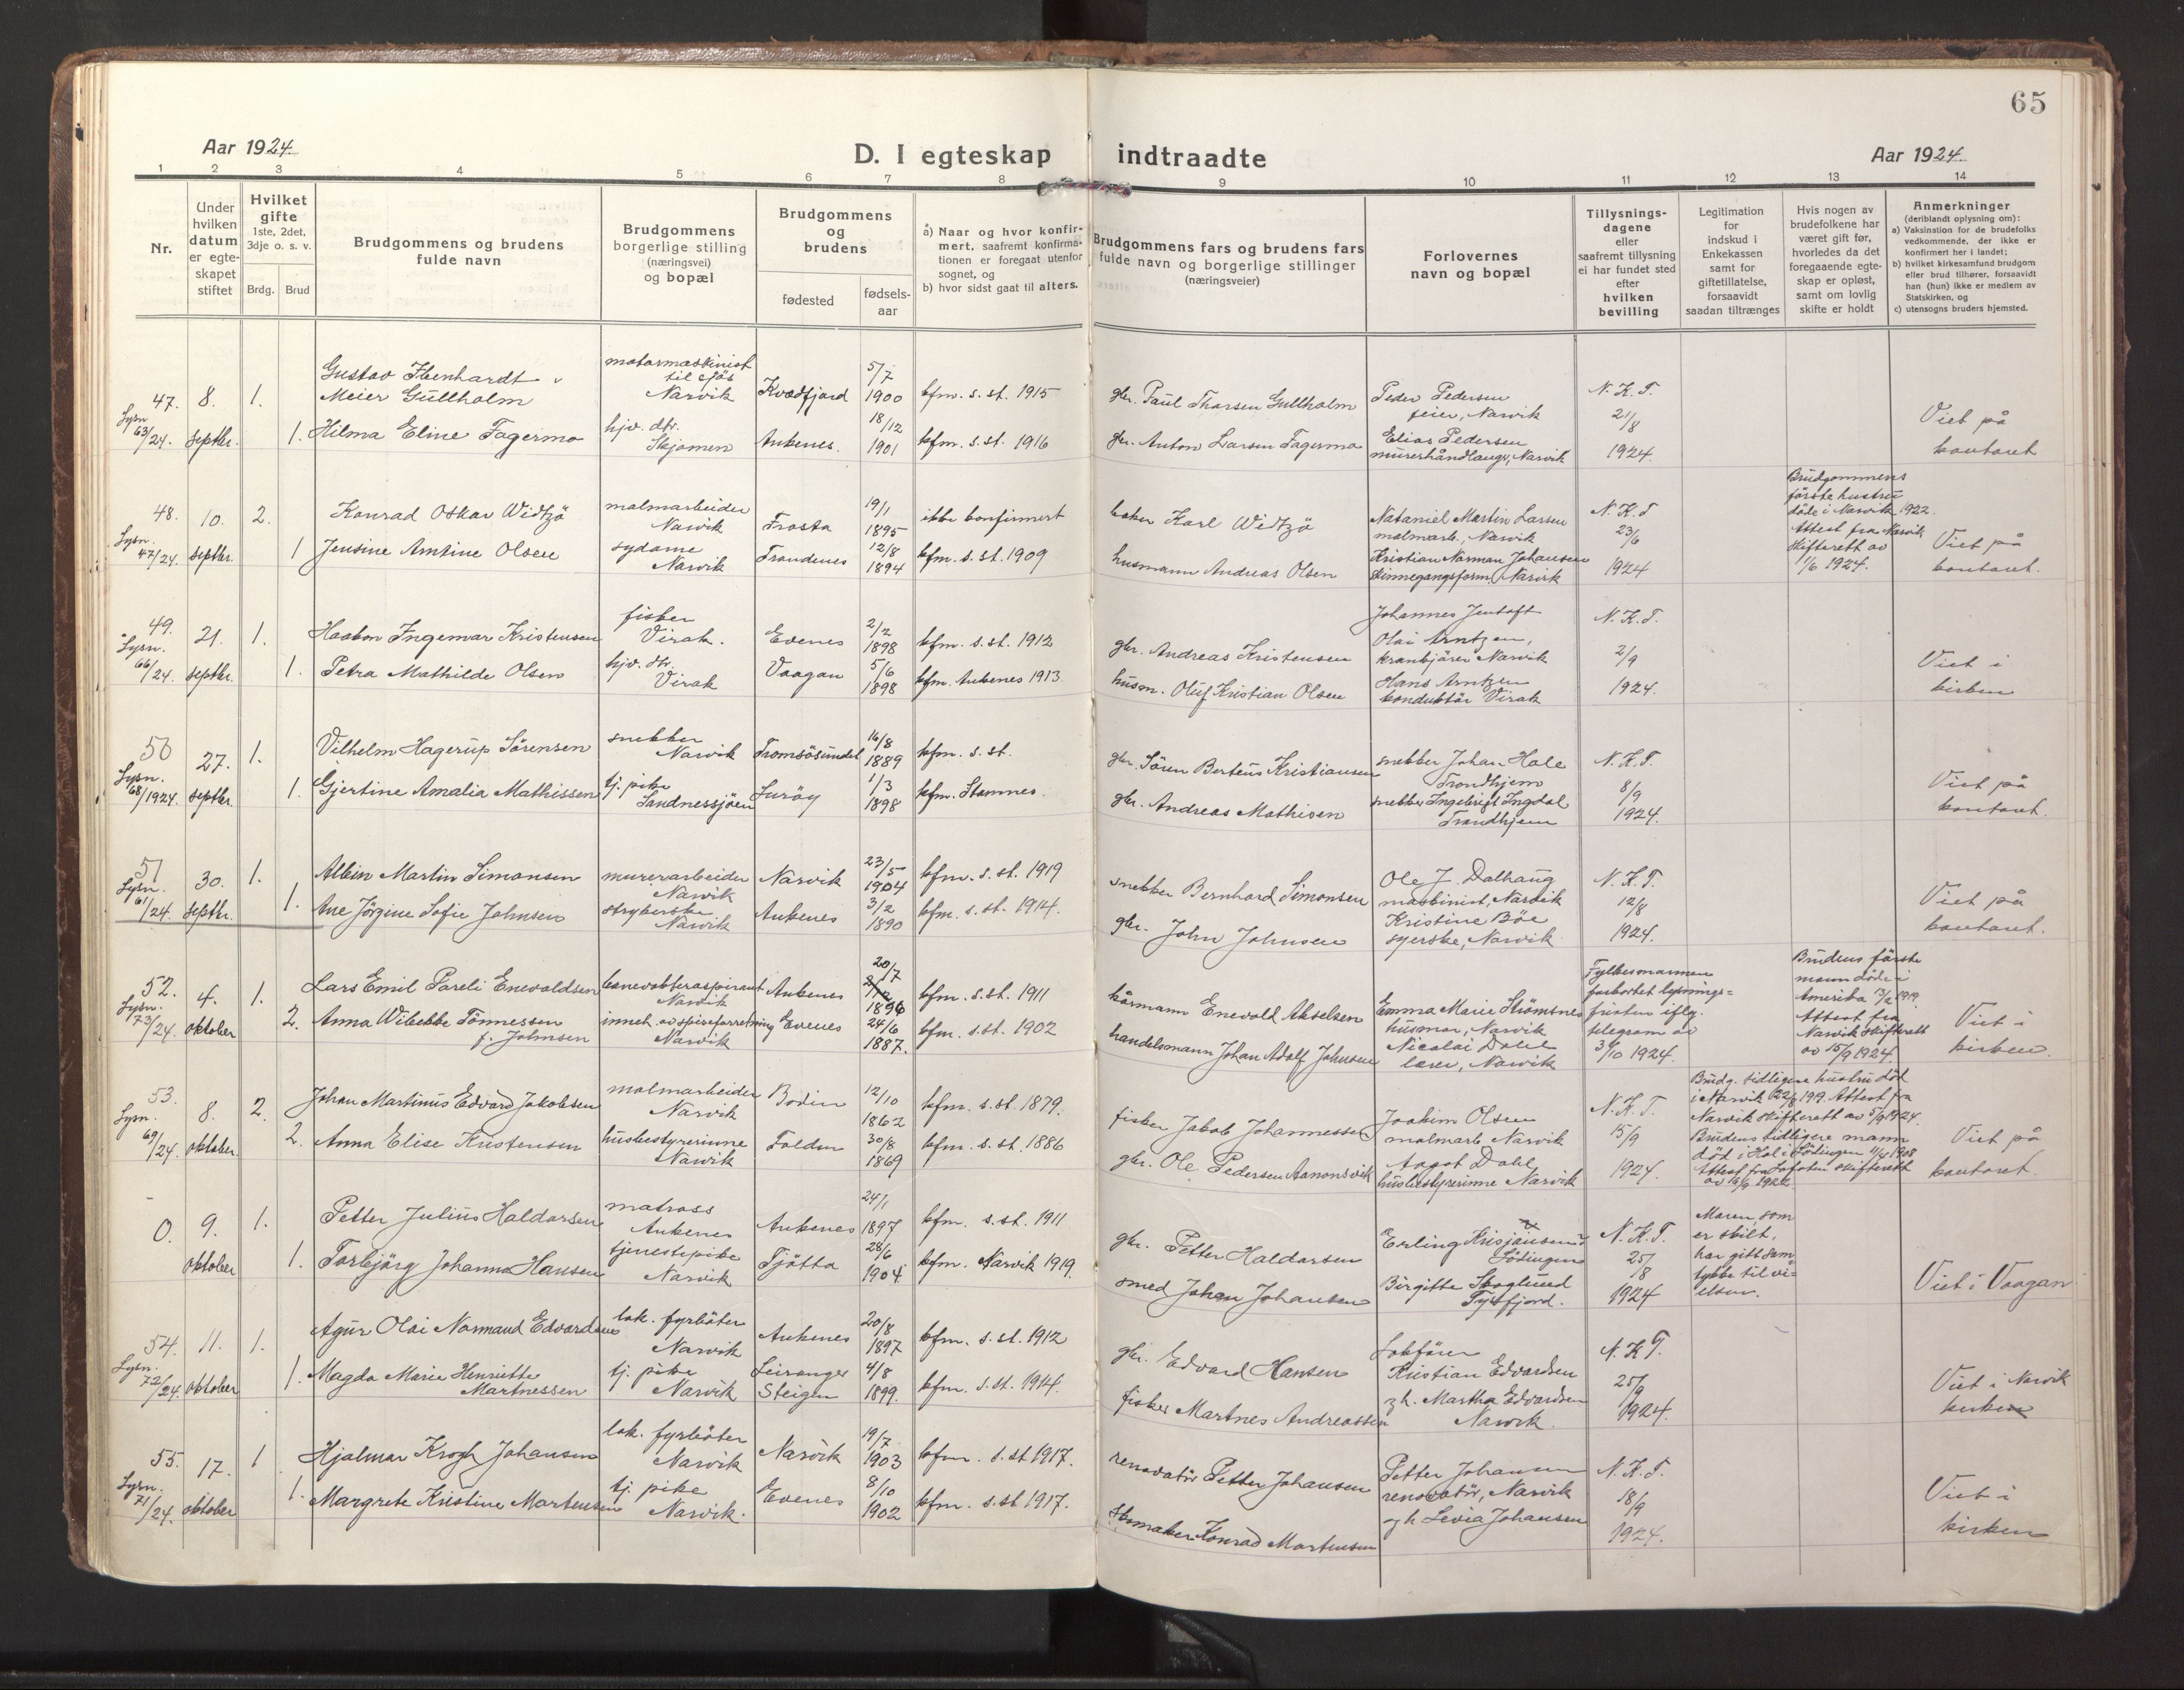 65
Aar 1924.
D. I egteskap indtraadte
Aar 1924.
1 2 3 4 5 6 7 8 9 10 11 12 13 14
Nr.
Under
hvilken
datum
er egte-
skapet
stiftet
Hvilket
gifte
1ste, 2det,
3dje o. s. v.
Brdg. Brud
Brudgommens og brudens
fulde navn
Brudgommens
borgerlige stilling
(næringsvei)
og bopæl
Brudgommens
og
brudens
fødested
fødsels-
aar
a) Naar og hvor konfir-
mert, saafremt konfirma-
tionen er foregaat utenfor
sognet, og
b) hvor sidst gaat til alters.
Brudgommens fars og brudens fars
fulde navn og borgerlige stillinger
(næringsveier)
Forlovernes
navn og bopæl
Tillysnings-
dagene
eller
saafremt tillysning
ei har fundet sted
efter
hvilken
bevilling
Legitimation
for
indskud i
Enkekassen
samt for
giftetillatelse,
forsaavidt
saadan tiltrænges
Hvis nogen av
brudefolkene har
været gift før,
hvorledes da det
foregaaende egte-
skap er opløst,
samt om lovlig
skifte er holdt
Anmerkninger
(deriblandt oplysning om):
a) Vaksination for de brudefolks
vedkommende, der ikke er
konfirmert her i landet;
b) hvilket kirkesamfund brudgom
eller brud tilhører, forsaavidt
han (hun) ikke er medlem av
Statskirken, og
c) utensogns bruders hjemsted.
47.
Lysn.
63/24.
8.
septbr.
1.
1.
Gustav
Meier Gullholm
Hilma Eline Fagermo
motormaskinist
til sjøs
Narvik
hjv. dtr.
Skjomen
Kvedfjord
Ankenes.
5/7
1900
18/12
1901
kfm. s. st. 1915
kfm. s. st. 1916
gbr. Paul Thorsen Gullholm
gbr. Anton Larsen Fagermo
Peder Pedersen
feier, Narvik
Elias Pedersen
murerhåndlanger, Narvik
N. K. T.
21/8
1924.
Viet på
kontoret
48.
Lysn.
47/24.
10.
septbr.
2.
1
Konrad Oskar Widtzö
Jensine Amtine Olsen
malmarbeider
Narvik
sydame
Narvik
Frosta
Trondenes
19/1
1895
12/8
1894
ikke konfirmert
kfm. s. st. 1909
baker Karl Widtzö
husmann Andreas Olsen
Nataniel Martin Larsen
malmarb., Narvik
Kristian Norman Johansen
skinnegangsform. Narvik
N. K. T
23/6
1924
Brudgommens
første hustru
døde i Narvik 1922.
Attest fra Narvik
skifterett av
11/6 1924.
Viet på
kontoret.
49.
Lysn.
66/24.
21.
septbr.
1.
1.
Haakon Ingemar Kristensen
Petra Mathilde Olsen
fisker
Virak.
hjv. dtr.
Virak
Evenes
Vaagan
2/2
1898
5/6
1898
kfm. s. st. 1912
kfm. Ankenes 1913.
gbr. Andreas Kristensen
husm. Oluf Kristian Olsen
Johannes Jentoft
Olai Arntzen,
krankjører Narvik
Hans Arntzen
konduktør Virak
N. K. T.
2/9
1924.
Viet i
kirken
50
Lysn.
68/1924.
27.
septbr.
1.
1.
Vilhelm Hagerup Sörensen
Gjertine Amalia Mathissen
snekker
Narvik
tj. pike
Sandnessjöen
Tromsösundet
Luröy
16/8
1889
1/3
1898
kfm. s. st.
kfm. Stamnes.
gbr. Sören Berteus Kristiansen
gbr. Andreas Mathisen
snekker Johan Hole
Trondhjem
snekker Ingebrigt Ingdal
Trondhjem
N. K. T.
8/9
1924.
Viet på
kontoret.
51
Lysn.
61/24.
30.
septbr.
1.
1.
Albin Martin Simonsen
Ane Jörgine Sofie Johnsen
murerarbeider
Narvik
strykerske
Narvik
Narvik
Ankenes
23/5
1904
3/2
1890
kfm. s. st. 1919
kfm. s. st. 1914.
snekker Bernhard Simonsen
gbr. John Johnsen
Ole J. Dalhaug
maskinist, Narvik
Kristine Böe
syerske, Narvik
N. K. T.
12/8
1924.
Viet på
kontoret.
52.
Lysn.
73/24.
4.
oktober
1.
2.
Lars Emil Pareli Enevoldsen
Anna Wibekke Tönnessen
f. Johnsen
banevokteraspirant
Narvik
inneh. av spiseforretning
Narvik
Ankenes
Evenes
20/7
1896
24/6
1887.
kfm. s. st. 1911
kfm. s. st. 1902
kårmann Enevold Akselsen
handelsmann Johan Adolf Johnsen
Emma Marie Strömsnes
husmor, Narvik
Nicolai Dahl
lærer, Narvik
Fylkesmannen
forkortet lysnings=
fristen iflg.
telegram av
3/10 1924.
Brudens første
mann døde i
Amerika 13/2 1919.
Attest fra
Narvik skifterett
av 15/9 1924.
Viet i
kirken.
53.
Lysn.
69/24.
8.
oktober.
2.
2.
Johan Martinus Edvard Jakobsen
Anna Elise Kristensen
malmarbeider
Narvik
husbestyrerinne
Narvik
Bodin
Folden
12/10
1862
30/8
1869
kfm. s. st. 1879.
kfm. s. st. 1886
fisker Jakob Johannessen
gbr. Ole Pedersen Aamonsvik
Joakim Olsen
malmarb Narvik
Aagot Dahl
husbestyrerinne Narvik
N. K. T.
15/9
1924.
Brudg. tidligere hustru død
Attest fra
Narvik skifterett av 5/9 1924.
Brudens tidligere mann
død i Hol i Lödingen 11/5 1908
Attest fra Lofoten skifterett
Viet på
kontoret.
0.
9.
oktober
1.
1.
Petter Julius Haldorsen
Torbjörg Johanna Hansen
matross
Ankenes
tjenestepike
Narvik
Ankenes
Tjötta
24/1
1897
28/6
1904
kfm. s. st. 1911
kfm. Narvik 1919.
gbr. Petter Haldorsen
smed Johan Johansen
Erling Kristiansen
Lödingen
Birgitte Skoglund
Tysfjord.
N. K. T.
25/8
1924
Moren, som
er skilt,
har gitt sam
tykke til vi=
elsen.
Viet i Vaagan
54.
Lysn.
72/24.
11.
oktober
1.
1.
Agur Olai Normand Edvardsen
Magda Marie Henriette
Martnessen
lok. fyrbøter
Narvik
tj. pike
Narvik
Ankenes
Leiranger
Steigen
20/8
1897
4/8
1899.
kfm. s. st. 1912
kfm. s. st. 1914.
gbr. Edvard Hansen
fisker Martnes Andreassen
Lokfører
Kristian Edvardsen
og h. Martha Edvardsen
Narvik.
N. K. T.
25/9
1924.
Viet i Narvik
kirken
55.
Lysn.
71/24.
17.
oktober
1
1.
Hjalmar Krogh Johansen
Margrete Kristine Mortensen
lok. fyrbøter
Narvik
tj. pike
Narvik.
Narvik
Evenes
19/7
1903
8/10
1902
kfm. s. st 1917.
kfm. s. st 1917.
renovatør Petter Johansen
skomaker Konrad Mortensen
Petter Johansen
renovatör, Narvik
og h Levia Johansen
N. K. T.
18/9
1924.
Viet i
kirken